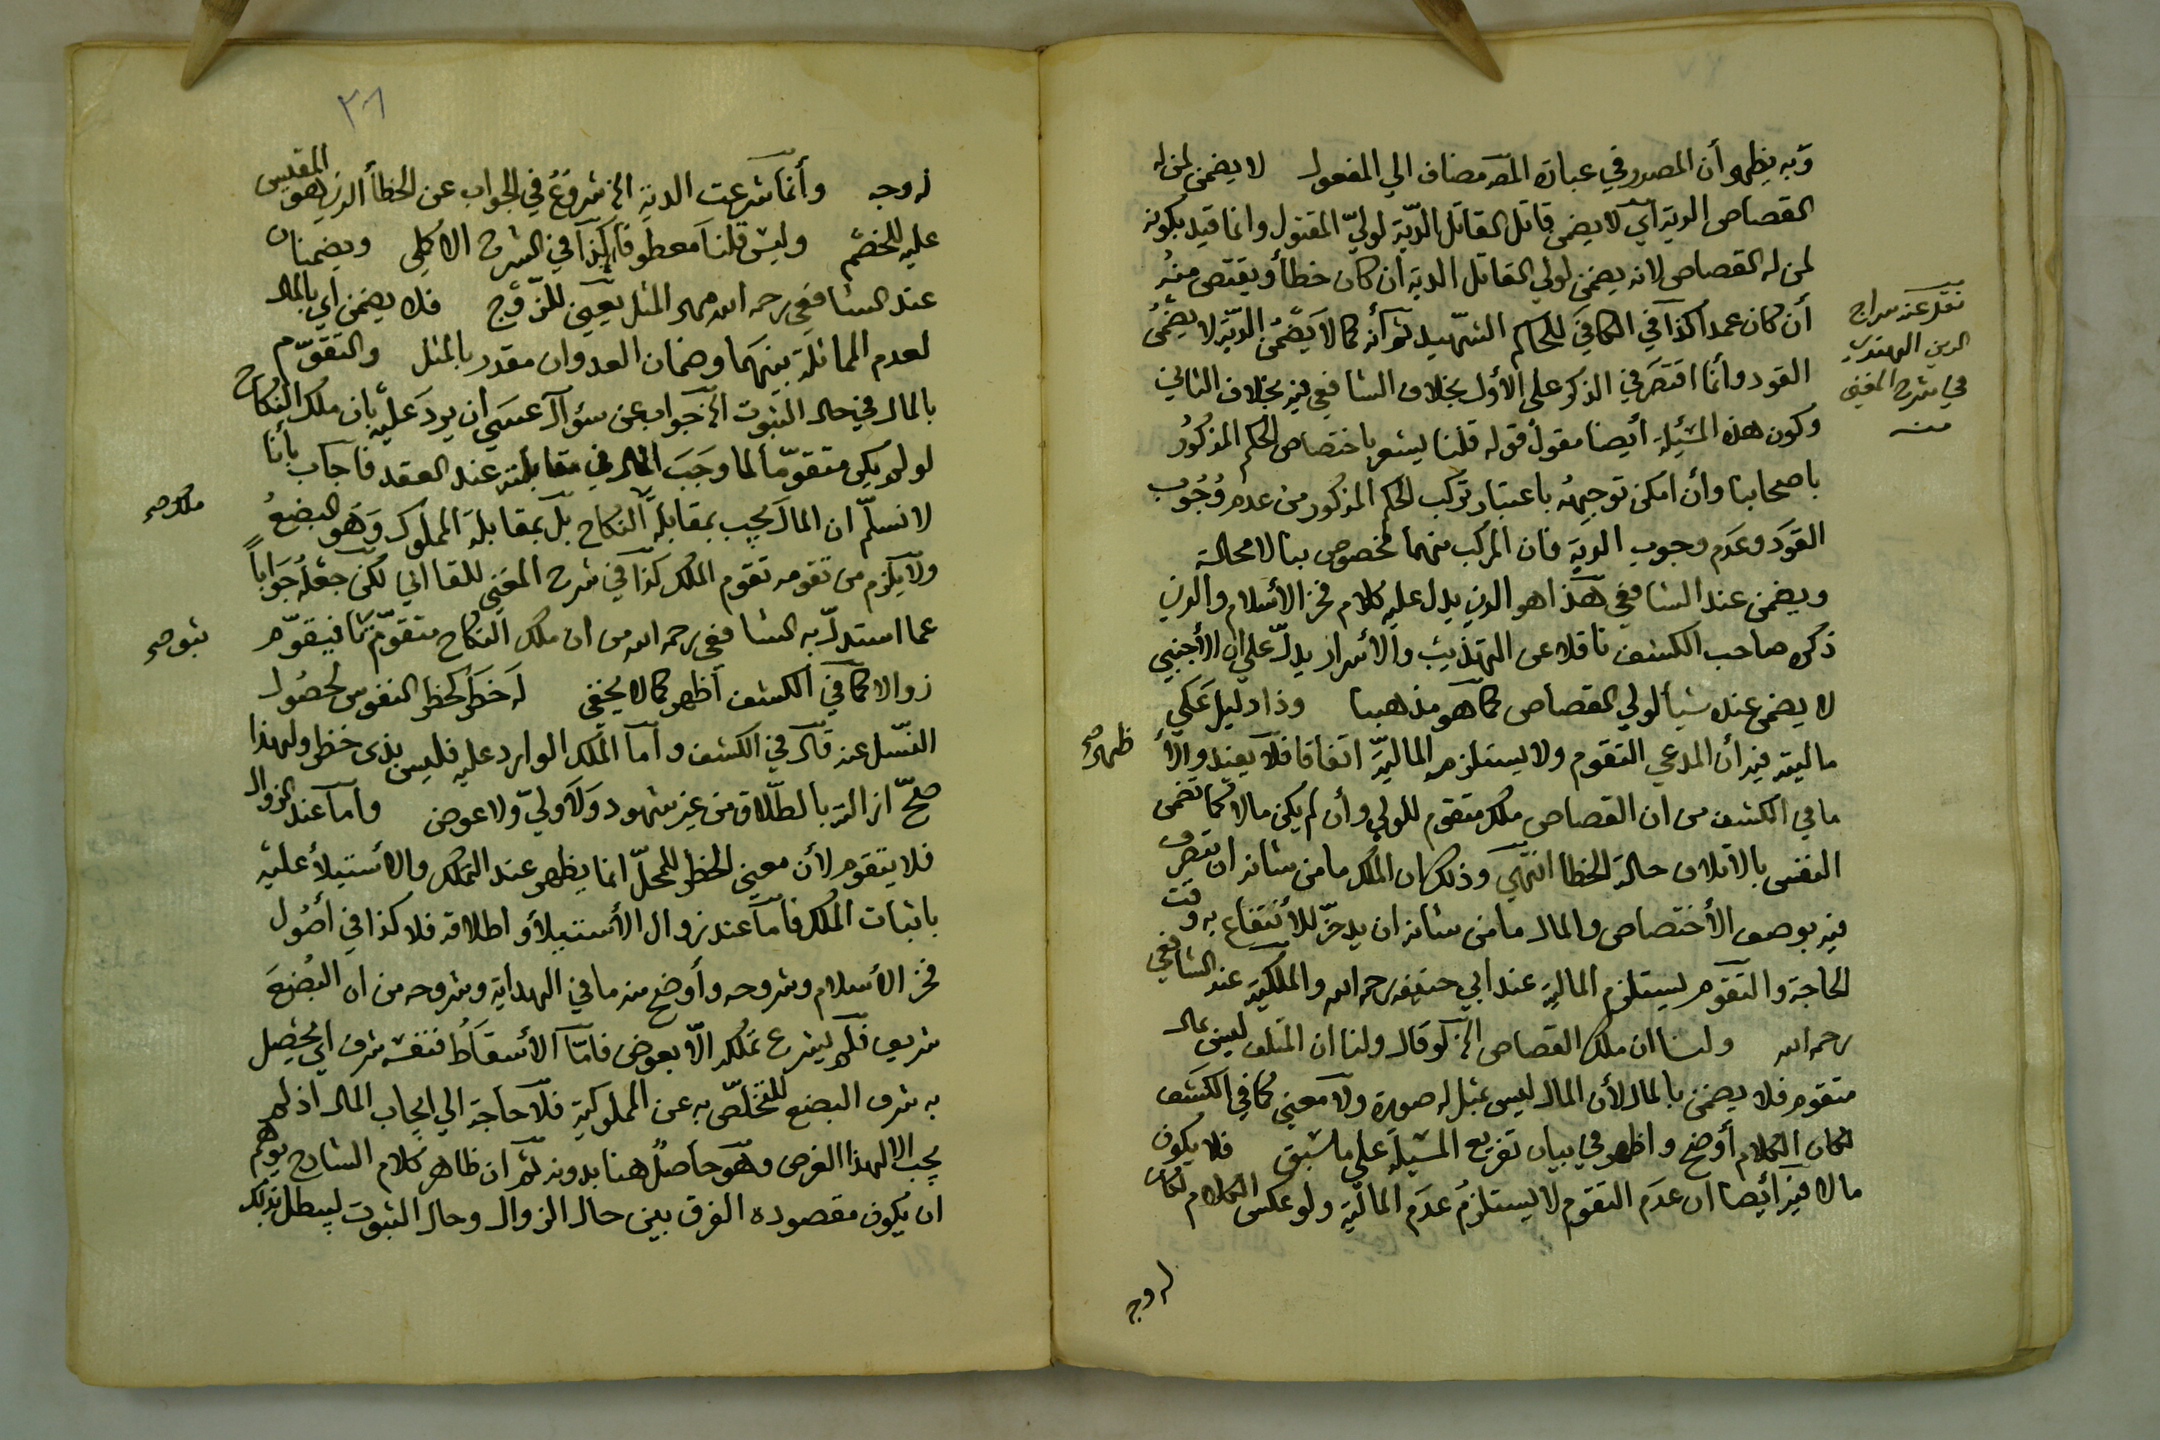 وبه يظهر أن المصدر في عبارة المصـ مضاف الي المفعول لا يضمن لمن له
القصاص الدية أي لا يضمن قاتل القاتل الدّية لوليّ المقتول وانما قيد بكونه
لمن له القصاص لانه يضمن لولي القاتل الدية ان كان خطأ ويقتص منهُ
أن كان عمدا كذا في الكافي للحاكم الشّهيد ثم أنه كما لا يضمن الديّة لا يضمن
القود وأنما اقتصر في الذكر علي الأول بخلاف الشافعي فيه بخلاف الثاني
وكون هذه المسئلة أيضا مقول قوله قلنا يشعر باختصاص الحكم المذكورُ
باصحابنا وأن امكن توجيهه باعتبار تركب الحكم المذكور من عدم وُجُوب
القوَد وعدم وجوب الدية فان المركب منهما مخصوص بنا لا محالة
ويضمن عند الشافعي هذا هو الذي يدل عليه كلام فخر الأسلام والذي
ذكره صاحب الكشف ناقلا عن التهذيب والأسرار يدلّ علي ان الأجنبي
لا يضمن عنده شيأ لولي القصاص كما هو مذهبنا وذا دليل عَلي
ماليته فيه أن المدعي التقوم ولا يستلزمه الماليّة اتفاقا فلا يفيد والا
ما في الكشف من ان القصاص ملك متقوم للولي وأن لم يكن مالا كما تضمن
النفس بالاتلاف حالة الخطا انتهي وذلك ان الملك ما من شانه ان يتصرف
فيه بوصف الأختصاص والمال ما من شانه ان يدخّر للأنتفاع به وقت
الحاجة والتقوم يستلزم المالية عند ابي حنيفه رحمه الله والملكية عند الشافعي
رحمه الله ولنا ان ملك القصاص الخ لو قال ولنا ان المتلف ليس بمال
متقوم فلا يضمن بالمال لأن المال ليس بمثل له صورة ولا معني كما في الكشف
لكان الكلام أوضح واظهر في بيان تفريع المسيلة علي ما سبق فلا يكون
مالا فيه أيضا ان عدم التقوم لا يستلزم عدم المالية ولو عكس الكلام لكان
له وجه
نقل عنه سراج
الدين الهندي
في شرح المغني
منه
ظهر صح
٣٦
له وجه وأنما شرعت الدية الخ شروعُ في الجواب عن الخطأ الذي هو المقيس
عليه للخصم وليس قلنا معطوفا كذا في الشرح الاكملي ويضمنان
عند الشافعي رحمه الله مهر المثل يعني للزّوْج فلا يضمن أي بالمال
لعدم المماثلة بينهما وضمان العدوان مقدر بالمثل والتقوّم
بالمال في حال الثبوت الخ جواب عن سؤال عسي ان يردَ عليه بان ملك النكاح
لو لم يكن متقوّما لما وجَبَ المال في مقابلته عند العقد فاجاب بأنا
لا نسلّم ان المال يجب بمقابلة النكاح بل بمقابلة المملوك وهو البضعُ
ولا يلزم من تقومه تقوم الملك كذا في شرح المغني للقاآني لكن جعله جوَاباً
عما استدلّ به الشافعي رحمه الله من ان ملك النكاح متقوّم ثبوتا فيتقوّم
زوالا كما في الكشف أظهر كما لا يخفي له خطر كخطر النفوس لحصُول
النسّل عنه قال في الكشف وأما الملك الوارد عليه فليس بذي خطر ولهذا
صحّ ازالته بالطلّاق من غير شهود ولا وليّ ولا عوض وأما عند الزوال
فلا يتقوم لأن معني الخطر للمحلّ انما يظهر عند التملك والأستيلأ عليه
باثبات الملك فأما عند زوال الأستيلأ واطلاقه فلا كذا في أصُول
فخر الأسلام وشروحه وأوضح منه ما في الهداية وشروحه من ان البُضعَ
شريف فلم يشرع تملكه الاّ بعوض فامّا الأسقاط فنفسه شرف اي يحصل
به شرف البضع للتخلصّ به عن المملوكية فلا حاجة الي ايجاب المال اذ لم
يجب الا لهذا الغرض وهو حاصلُ هنا بدونه ثم ان ظاهر كلام الشارح يوهم
ان يكون مقصوده الفرق بين حال الزوال وحال الثبوت ليبطل بذلك
ملك صح
ثبو صح